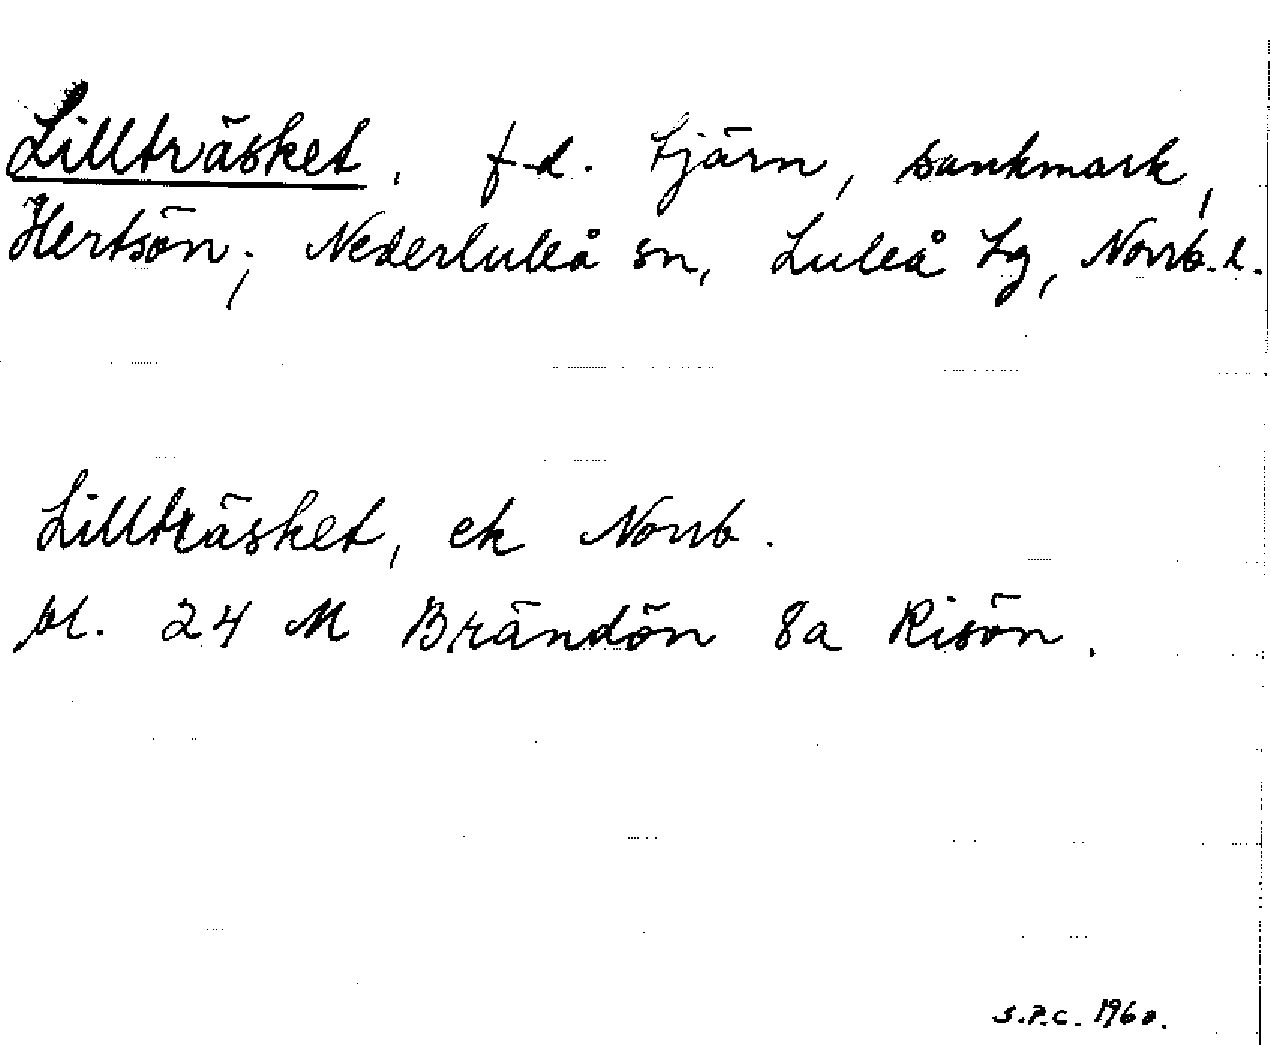 Lillträsket, f.d. tjärn, sankmark,
Hertsön; Nederluleå sn, Luleå tg, Norrb. l.
Lillträsket, ek Norrb.
bl. 24 M Brändön 8a Risön.
S.P.C. 1960.